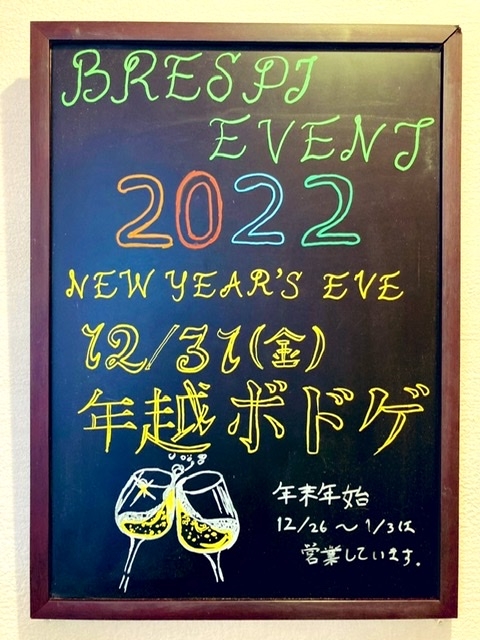 BRESPI
EVENT
2022
NEW YEAR'S EVE
12/31(金)
年越ボドゲ
年末年始
12/26〜1/3は
営業しています.